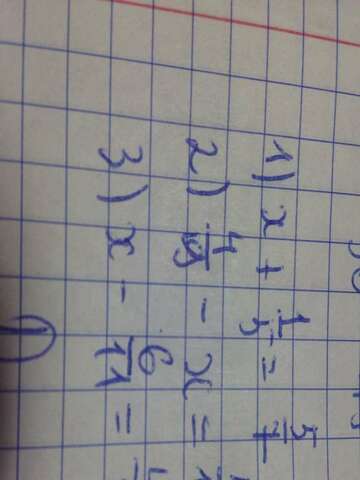 1) x + 1/5 = 5/7
2) 4/9 − x =
3) x − 6/11 =